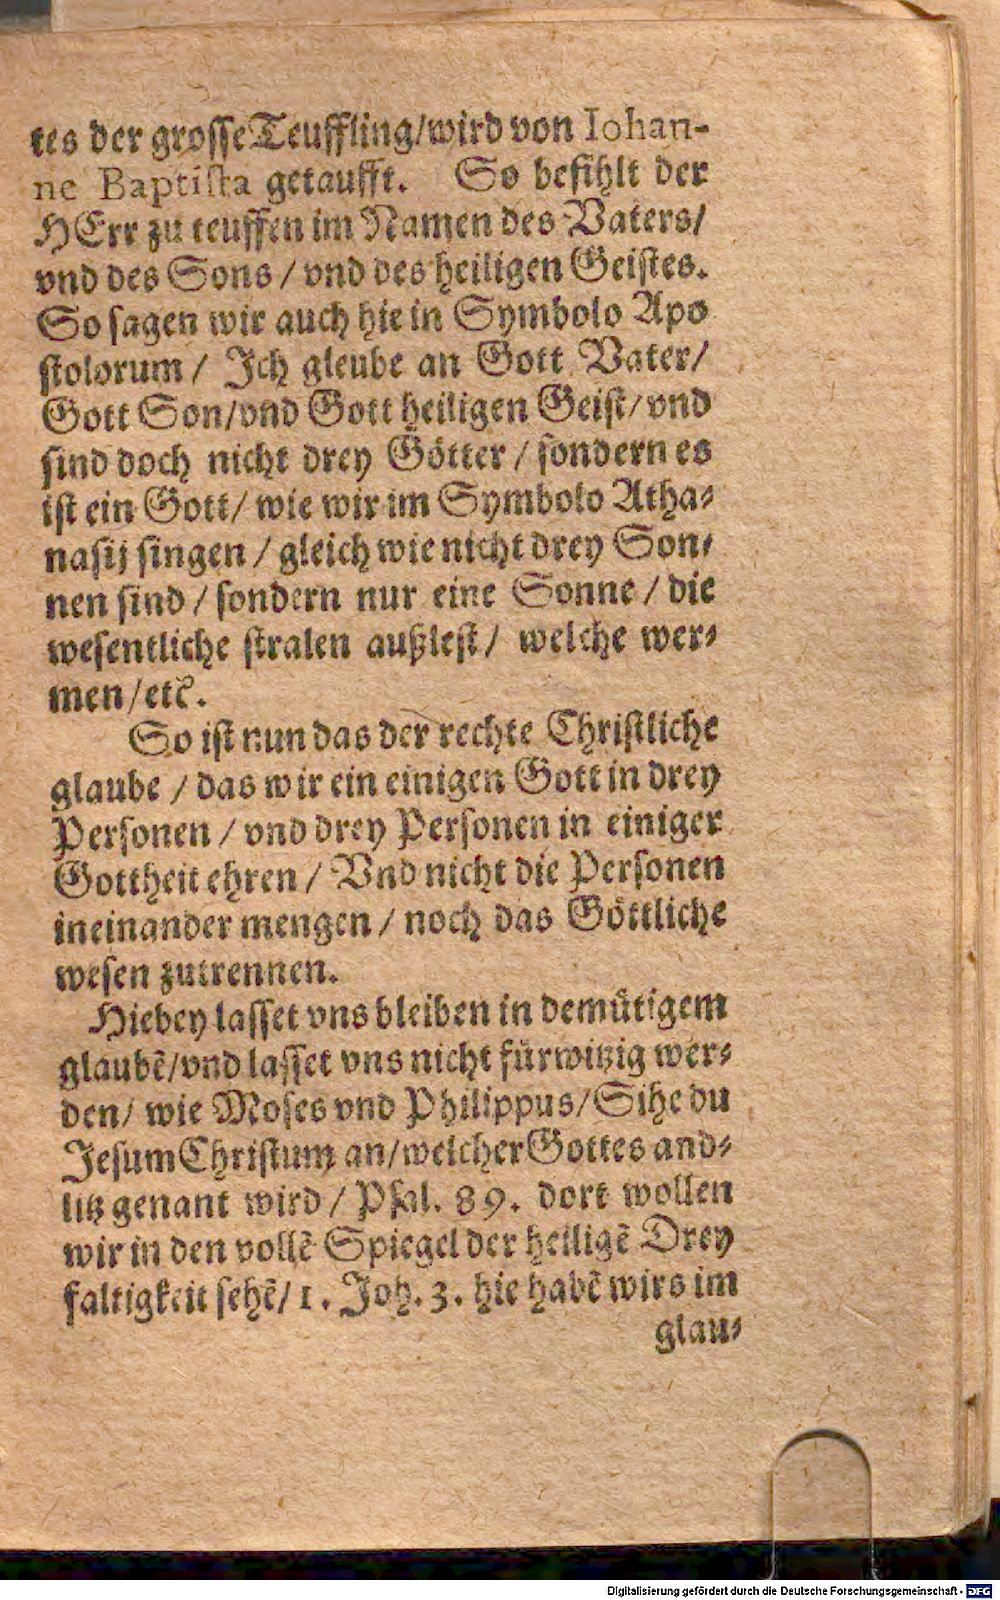 tes der grosse Teuffling/wird von Iohan-
ne Baptista getaufft. So befihlt der
HErr zu teuffen im Namen des Vaters/
vnd des Sons / vnd des heiligen Geistes.
So sagen wir auch hie in Symbolo Apo
stolorum / Ich gleube an Gott Vater/
Gott Son/vnd Gott heiligen Geist/vnd
sind doch nicht drey Götter / sondern es
ist ein Gott/ wie wir im Symbolo Atha-
nasij singen / gleich wie nicht drey Son-
nen sind / sondern nur eine Sonne / die
wesentliche stralen außlest/ welche wer-
men/etc.
So ist nun das der rechte Christliche
glaube / das wir ein einigen Gott in drey
Personen / vnd drey Personen in einiger
Gottheit ehren / Vnd nicht die Personen
ineinander mengen / noch das Göttliche
wesen zutrennen.
Hiebey lasset vns bleiben in demütigem
glaubẽ/vnd lasset vns nicht fürwitzig wer-
den/ wie Moses vnd Philippus/Sihe du
Jesum Christum an/welcher Gottes and-
litz genant wird / Psal. 89. dort wollen
wir in den vollẽ Spiegel der heiligẽ Drey
faltigkeit sehẽ/ 1. Joh. 3. hie habẽ wirs im
glau-
Digitalisierung gefördert durch die Deutsche Forschungsgemeinschaft - DFG